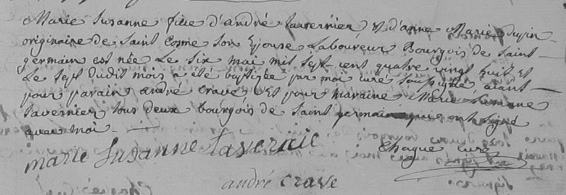 Marie Suzanne fille d'andré tavernier, et d'anne Marie Dupin
originaire de Saint Come son Epouse Laboureur Bourgois de Saint
germain est née Le six mai mil sept cent quatre vingt huit et
Le sept dudit mois a été baptisée par moi curé soussigné aiant
pour parain andré crave et pour maraine Marie Suzanne
tavernier tous deux bourgois de Saint germain qui ont signé
avec moi
marie Suzanne tavernié
Chaque curé
andré crave